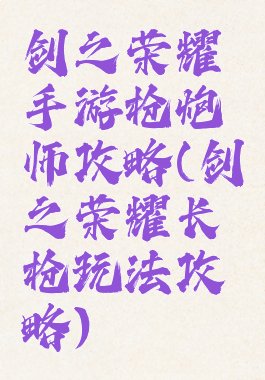 剑之荣耀
手游枪炮
师攻略(剑
之荣耀长
枪玩法攻
略)